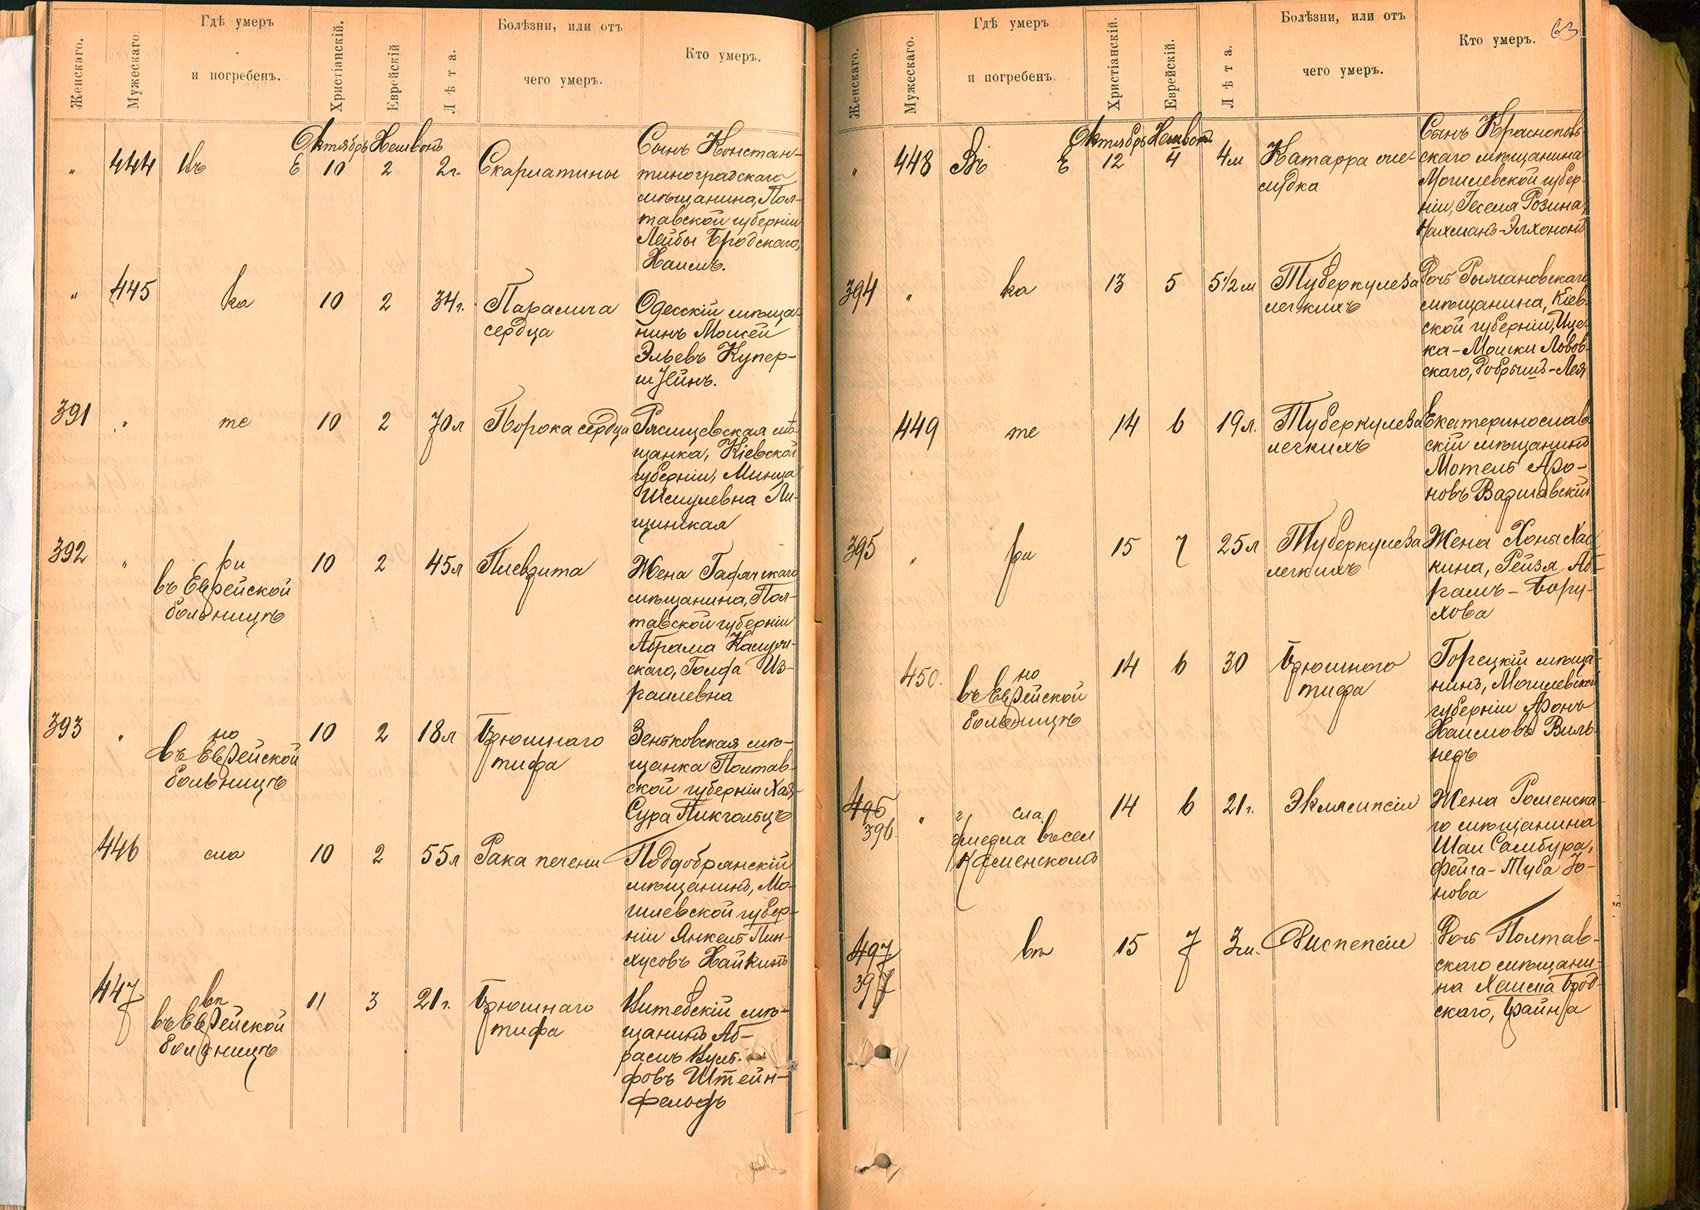 Женскаго.
Мужескаго.
Гдѣ умеръ
и погребенъ.
Христіанскій.
Еврейскій
Лѣта.
Болѣзни, или отъ
чего умеръ.
Кто умеръ.
Октябрь Хешвонъ
" 444 Въ Е 10 2 2г. Скарлатины
Сынъ Констан-
тиноградскаго
мѣщанина, Пол-
тавской губерніи
Лейбы Бродскаго,
Хаимъ.
" 445 ка 10 2 34г. Паралича
сердца
Одесскій мѣща-
нинъ Мошей
Эльевъ Купер-
штейнъ.
391 " те 10 2 70л Порока сердца
Ряснцевская мѣ-
щанка, Кіевской
губерніи, Минца
Шмулевна Ли-
щинская
392 " ри 10 2 45л Плеврита
въ Еврейской
больницѣ
Жена Гадячскаго
мѣщанина, Пол-
тавской губерніи
Абрама
скаго, Голда Из-
раилевна
393 " но 10 2 18л Брюшнаго
въ Еврейской тифа
больницѣ
Зеньковская мѣ-
щанка Полтав-
ской губерніи Хая-
Сура Пикгольцъ
446 сла 10 2 55л Рака печени
Подобрянскій
мѣщанинъ, Мо-
гилевской губер-
ніи Янкель Пин-
хусовъ Хайкинъ
447 вп 11 3 21г. Брюшнаго
въ Еврейской тифа
больницѣ
Витебскій мѣ-
щанинъ Аб-
рамъ Вуль-
фовъ Штейн-
фельдъ
63
Женскаго.
Мужескаго.
Гдѣ умеръ
и погребенъ.
Христіанскій.
Еврейскій.
Лѣта.
Болѣзни, или отъ
чего умеръ.
Кто умеръ.
Октябрь Хешвонъ
" 448 Въ Е 12 4 4м Катарра
Сынъ Краснопол-
скаго мѣщанина
Могилевской губер-
ніи, Гесселя Розина,
Нахманъ-Элхононъ
394 " ка 13 5 5 1/2 м Туберкулеза
легкихъ
Дочь Рыжановскаго
мѣщанина, Кіев-
ской губерніи, Ице-
ка-Мошки Львов-
скаго, Добрышъ-Лея
449 те 14 6 19л. Туберкулеза
легкихъ
Екатеринослав-
скій мѣщанинъ
Мотель Аро-
новъ Варшавскій
395 " ри 15 7 25л Туберкулеза
легкихъ
Жена Хоны Хай-
кина, Рейзя Аб-
рамъ-Бору-
хова
450. но 14 6 30 Брюшного
въ Еврейской тифа
больницѣ
Горецкій мѣща-
нинъ, Могилевской
губерніи Аронъ
Хаимовъ Виль-
недъ
495
396. " сла 14 6 21г. Эклямпсіи
умерла въ сел
Каменскомъ
Жена Роменска-
го мѣщанина
Шаи Самбура,
Фейга-Туба Іо-
нова
497
397 вп 15 7 3м. Диспепсіи
Дочь Полтав-
скаго мѣщани-
на Хаима Брод-
скаго, Файна